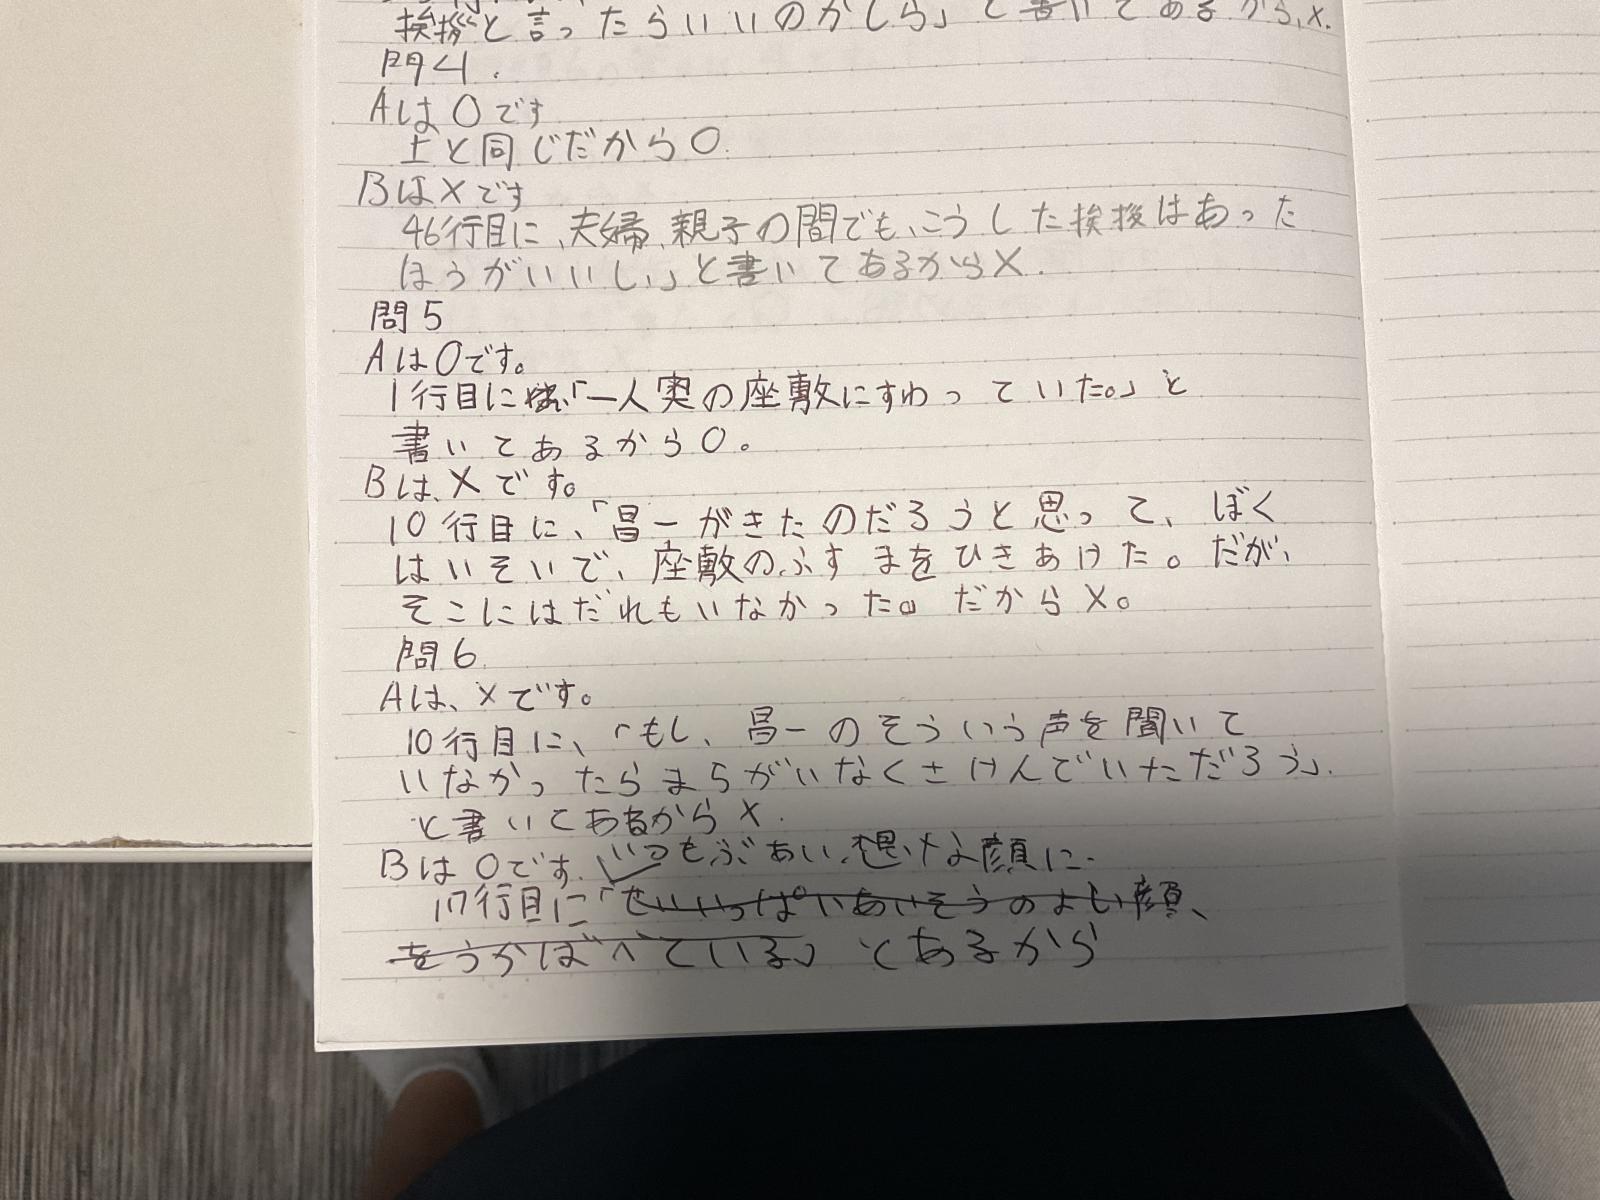 挨拶と言ったらいいのかしら」と書いてあるから、×.
問4.
Aは○です
上と同じだから○.
Bは×です
46行目に、夫婦、親子の間でも、こうした挨拶はあった
ほうがいいし、」と書いてあるから×.
問5
Aは○です。
1行目に「一人奥の座敷にすわっていた。」と
書いてあるから○。
Bは、×です。
10行目に、「昌一がきたのだろうと思って、ぼく
はいそいで、座敷のふすまをひきあけた。だが、
そこにはだれもいなかった。」だから×。
問6
Aは、×です。
10行目に、「もし、昌一のそういう声を聞いて
いなかったらまちがいなくさけんでいただろう」.
と書いてあるから×.
Bは○です. いつもぶあい想な顔に.
17行目に「せいいっぱいあいそうのよい顔、
をうかべている」とあるから